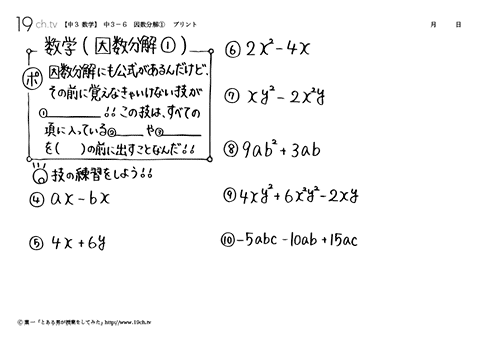 19 ch.tv 【中3 数学】 中3-6 因数分解① プリント 月 日
数学(因数分解①)
ポ 因数分解にも公式があるんだけど、
その前に覚えなきゃいけない技が
①________!!この技は、すべての
項に入っている②____や③____
を( )の前に出すことなんだ!!
技の練習をしよう!!
④ ax-bx
⑤ 4x+6y
⑥ 2x²-4x
⑦ xy²-2x²y
⑧ 9ab²+3ab
⑨ 4xy²+6x²y²-2xy
⑩ -5abc-10ab+15ac
© 葉一「とある男が授業をしてみた」http://www.19ch.tv